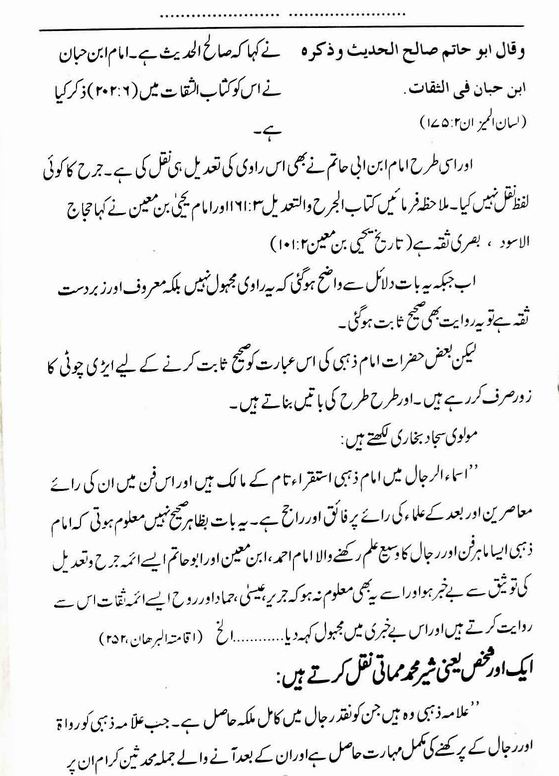 وقال ابو حاتم صالح الحديث وذكره
ابن حبان فى الثقات.
(لسان المیزان ۱۷۵:۲)
نے کہا کہ صالح الحدیث ہے۔ امام ابن حبان
نے اس کو کتاب الثقات میں (۲۰۲:۶) ذکر کیا
ہے۔
اور اسی طرح امام ابن ابی حاتم نے بھی اس راوی کی تعدیل ہی نقل کی ہے۔ جرح کا کوئی
لفظ نقل نہیں کیا۔ ملاحظہ فرمائیں کتاب الجرح والتعدیل ۱۶۱:۳ اور امام یحییٰ بن معین نے کہا حجاج
الاسود ، بصری ثقہ ہے (تاریخ یحیی بن معین ۱۰۱:۲)
اب جبکہ یہ بات دلائل سے واضح ہوگئی کہ یہ راوی مجہول نہیں بلکہ معروف اور زبردست
ثقہ ہے تو یہ روایت بھی صحیح ثابت ہوگئی۔
لیکن بعض حضرات امام ذہبی کی اس عبارت کو صحیح ثابت کرنے کے لیے ایڑی چوٹی کا
زور صرف کر رہے ہیں۔ اور طرح طرح کی باتیں بناتے ہیں۔
مولوی سجاد بخاری لکھتے ہیں:
’’اسماء الرجال میں امام ذہبی استقراء تام کے مالک ہیں اور اس فن میں ان کی رائے
معاصرین اور بعد کے علماء کی رائے پر فائق اور راجح ہے۔ یہ بات بظاہر صحیح نہیں معلوم ہوتی کہ امام
ذہبی ایسا ماہر فن اور رجال کا وسیع علم رکھنے والا امام احمد، ابن معین اور ابو حاتم ایسے ائمہ جرح و تعدیل
کی توثیق سے بے خبر ہو اور اسے یہ بھی معلوم نہ ہو کہ جریر، عیسیٰ، حماد اور روح ایسے ائمہ ثقات اس سے
روایت کرتے ہیں اور اس بے خبری میں مجہول کہہ دیا............الخ (اقامتہ البرھان، ۲۵۲)
ایک اور شخص یعنی شیر محمد مماتی نقل کرتے ہیں:
’’علامہ ذہبی وہ ہیں جن کو نقد رجال میں کامل ملکہ حاصل ہے۔ جب علّامہ ذہبی کو رواۃ
اور رجال کے پرکھنے کی مکمل مہارت حاصل ہے اور ان کے بعد آنے والے جملہ محدثین کرام ان پر